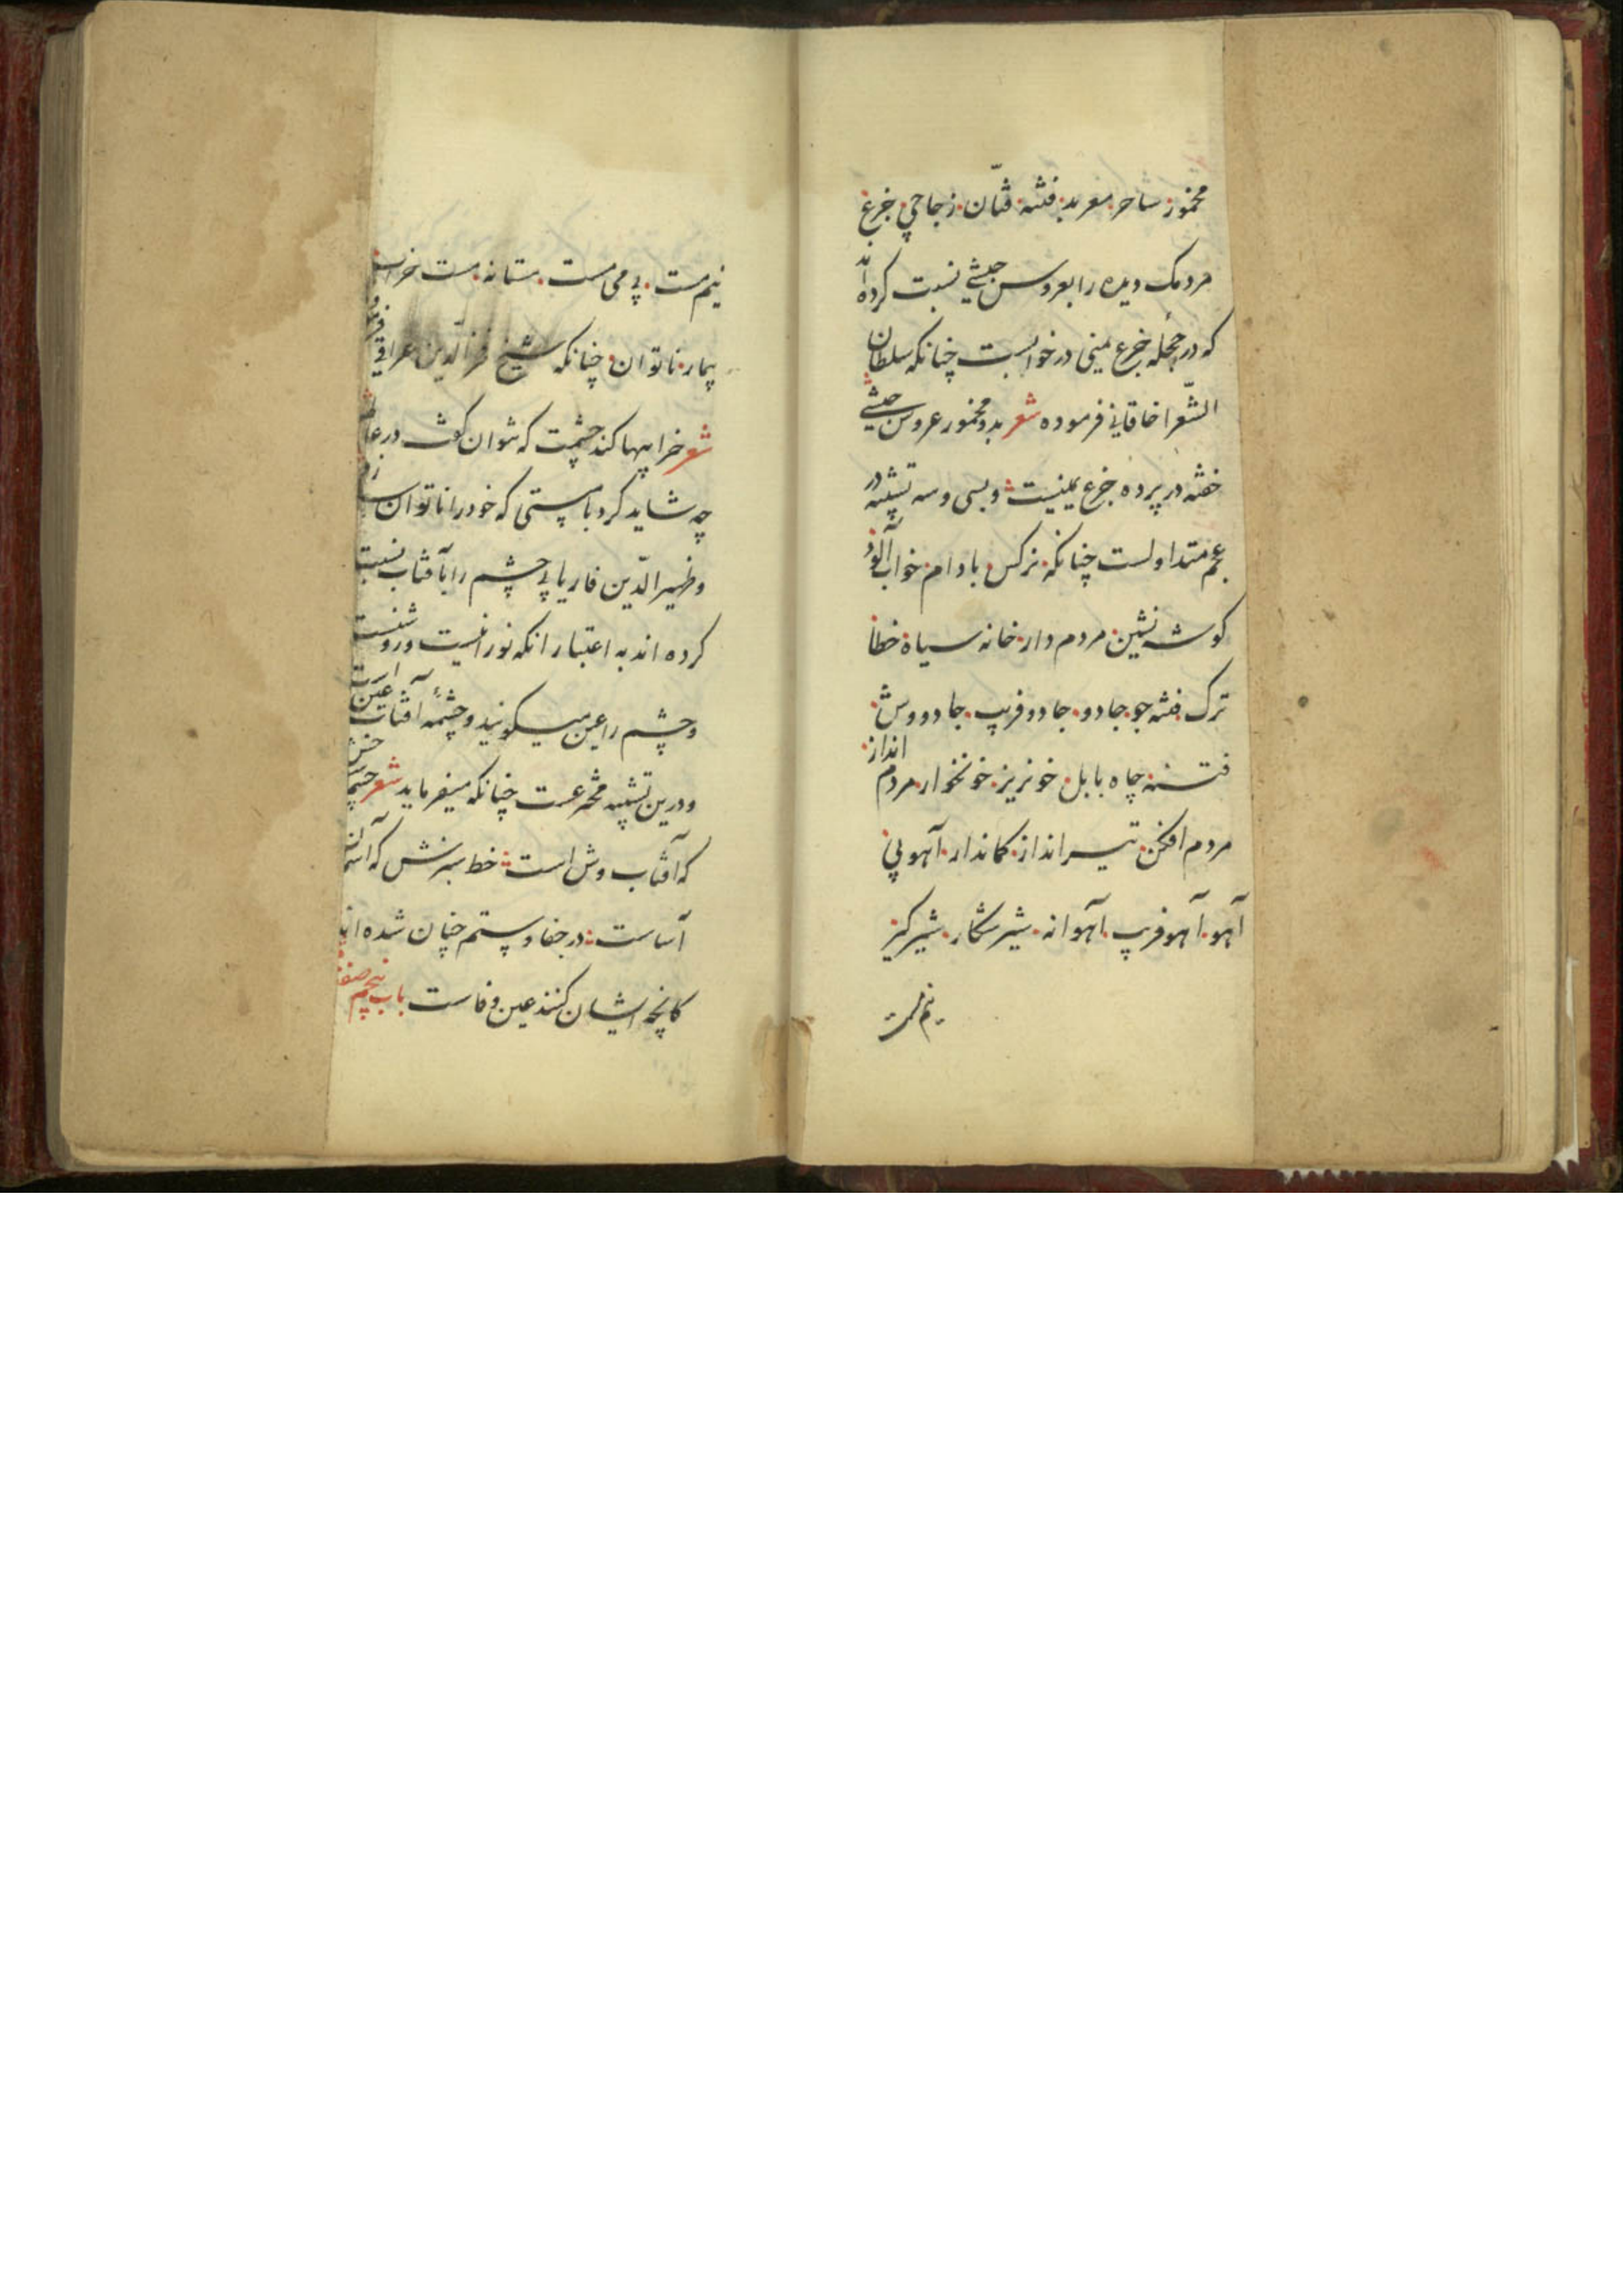 مخمور ساحر معربد فتنه فتّان زجاجی جزع
مردمک دیده را بعروس حبشی نسبت کرده اند
که در حجله جزع یمنی در خوابست چنانکه سلطان
الشّعرا خاقانی فرموده شعر بدو مخمور عروس حبشی
خفته در پرده جزع یمنیست و بسی و سه تشبیه در
عجم متداولست چنانکه نرکس بادام خواب آلود
کوشه نشین مردم دار خانه سیاه خطا
ترک فتنه جو جادو جادو فریب جادو وش
فتنه چاه بابل خونریز خونخوار مردم انداز
مردم افکن تیر انداز کماندار آهویی
آهو آهو فریب آهوانه شیر شکار شیر کیر
نیم مست
نیم مست بی می مست مستانه مست خراب
بیمار ناتوان چنانکه شیخ فخر الدّین عراقی
شعر خرابیها کند چشمت که نتوان کفت در عالم
چه شاید کرد با مستی که خود را ناتوان سازد
و ظهیر الدّین فاریابی چشم را بآفتاب نسبت
کرده اند به اعتبار انکه نورانیست و روشنست
و چشم را عین میکویند و چشمهٔ آفتاب عین است
و درین تشبیه مخترعست چنانکه میفرماید شعر چشم
که آفتاب وش است خط سبزش که آسمان
آساست در جفا و ستم چنان شده اند
کانچه ایشان کنند عین وفاست باب پنجم صفت